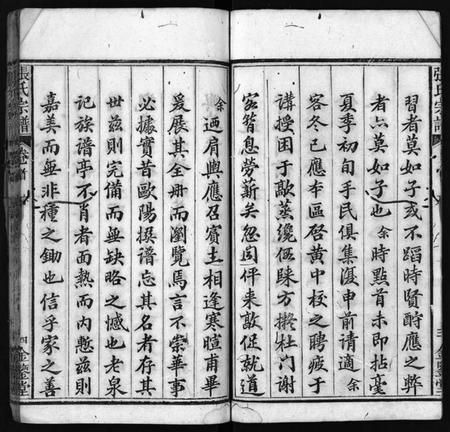 習者莫如子或不蹈時賢酬應之弊
者亦莫如子也余時點首未即拈毫
夏季初旬手民俱集復申前請適余
客冬已應本區啓黄中校之聘疲于
講授困于歊蒸纔伍睞方擬杜门謝
客暫息勞薪矣忽囙伻来敦促就道
余迺肩輿應召賓主相逢寒暄甫畢
爰展其全册而瀏覽焉言不崇華事
必據實昔歐陽撰譜忘其名者存其
世兹則完備而無缺略之憾也老泉
記族譜亭不肖者面熱而内慙兹則
嘉美而無非種之鋤也信乎家之善
張氏宗譜
卷首
四
金鑒堂
張氏宗譜
三
金鑒堂